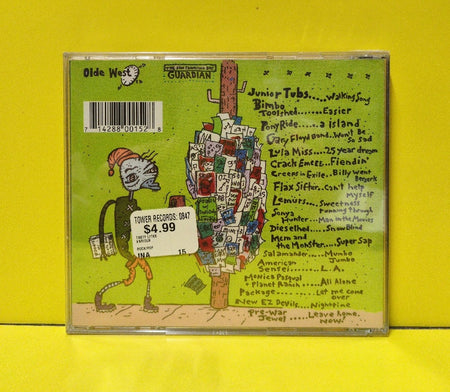 Olde West
THE SAN FRANCISCO BAY
GUARDIAN
7 14288 00152 8
TOWER RECORDS: 0847
$4.99
ROCK/POP
INA 15
Junior Tubs.....Walking Song
Bimbo
Toolshed......Easier
Pony Ride.....a island
Gary Floyd Band..Won't Be
So Sad
Lula Miss....25 year dream
Crack Emcee...Fiendin'
Creeps in Exile..Billy Went
Berzerk
Flax Sifter..Can't help
myself
Lemurs.....Sweetness
Running Through
Sonya
Hunter...Man in the Movies
Dieselhed....Snow Blind
Mcm and
the Monster...Super Sap
Salamander....Mumbo
Jumbo
American
Sensei......L.A.
Monica Pasqual
+ Planet Ranch...All Alone
Package.......Let me come
over
New EZ Devils...Nightime
Pre-War
Jewel.....Leave home
Now!